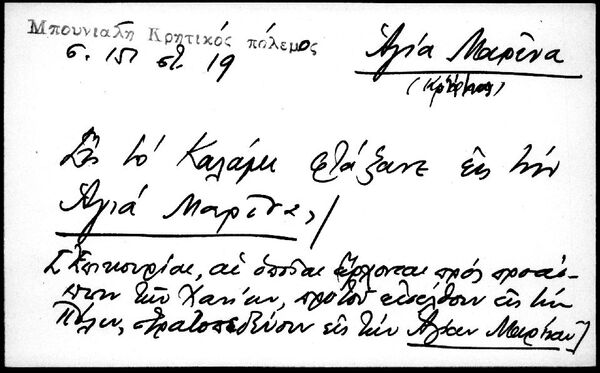 Μπουνιαλη Κρητικός πόλεμος
σ. 151 στ. 19
Ἁγία Μαρίνα
Σὲ τὸ Καλάμι φτάξανε εἰς τὴν
Ἁγιά Μαρῖνα,/
[Ἐπικουρίαι, αἱ ὁποῖαι ἔρχονται πρὸς προάσ-
πισιν τῶν Χανίων, προτοῦ εἰσέλθουν εἰς τὴν
πόλιν, στρατοπεδεύουν εἰς τὴν Ἁγίαν Μαρίναν]